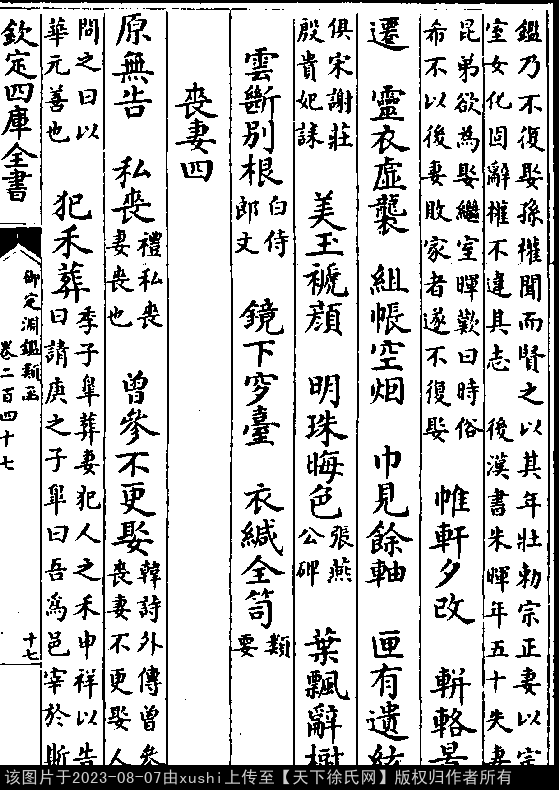 鑑乃不復娶孫權聞而賢之以其年壯勅宗正妻以宗
室女化固辭權不違其志 後漢書朱暉年五十失妻
昆弟欲為娶繼室暉歎曰時俗
希不以後妻敗家者遂不復娶
帷軒夕改 軿輅
遷 靈衣虛襲 組帳空烟 巾見餘軸 匣有遺絃
俱宋謝莊
殷貴妃誄
美玉褫顔 明珠晦色
張燕
公碑
葉飄辭樹
雲斷別根
白侍
郎文
鏡下穸臺 衣緘全笥
類
要
喪妻四
原無告 私喪
禮私喪
妻喪也
曾參不更娶
韓詩外傳曾參
喪妻不更娶人
問之曰以
華元善也
犯禾葬
季子皐葬妻犯人之禾申祥以告
曰請庚之子皐曰吾為邑宰於斯
欽定四庫全書
御定淵鑑類函
卷二百四十七
十七
该图片于2023-08-07由xushi上传至【天下徐氏网】版权归作者所有